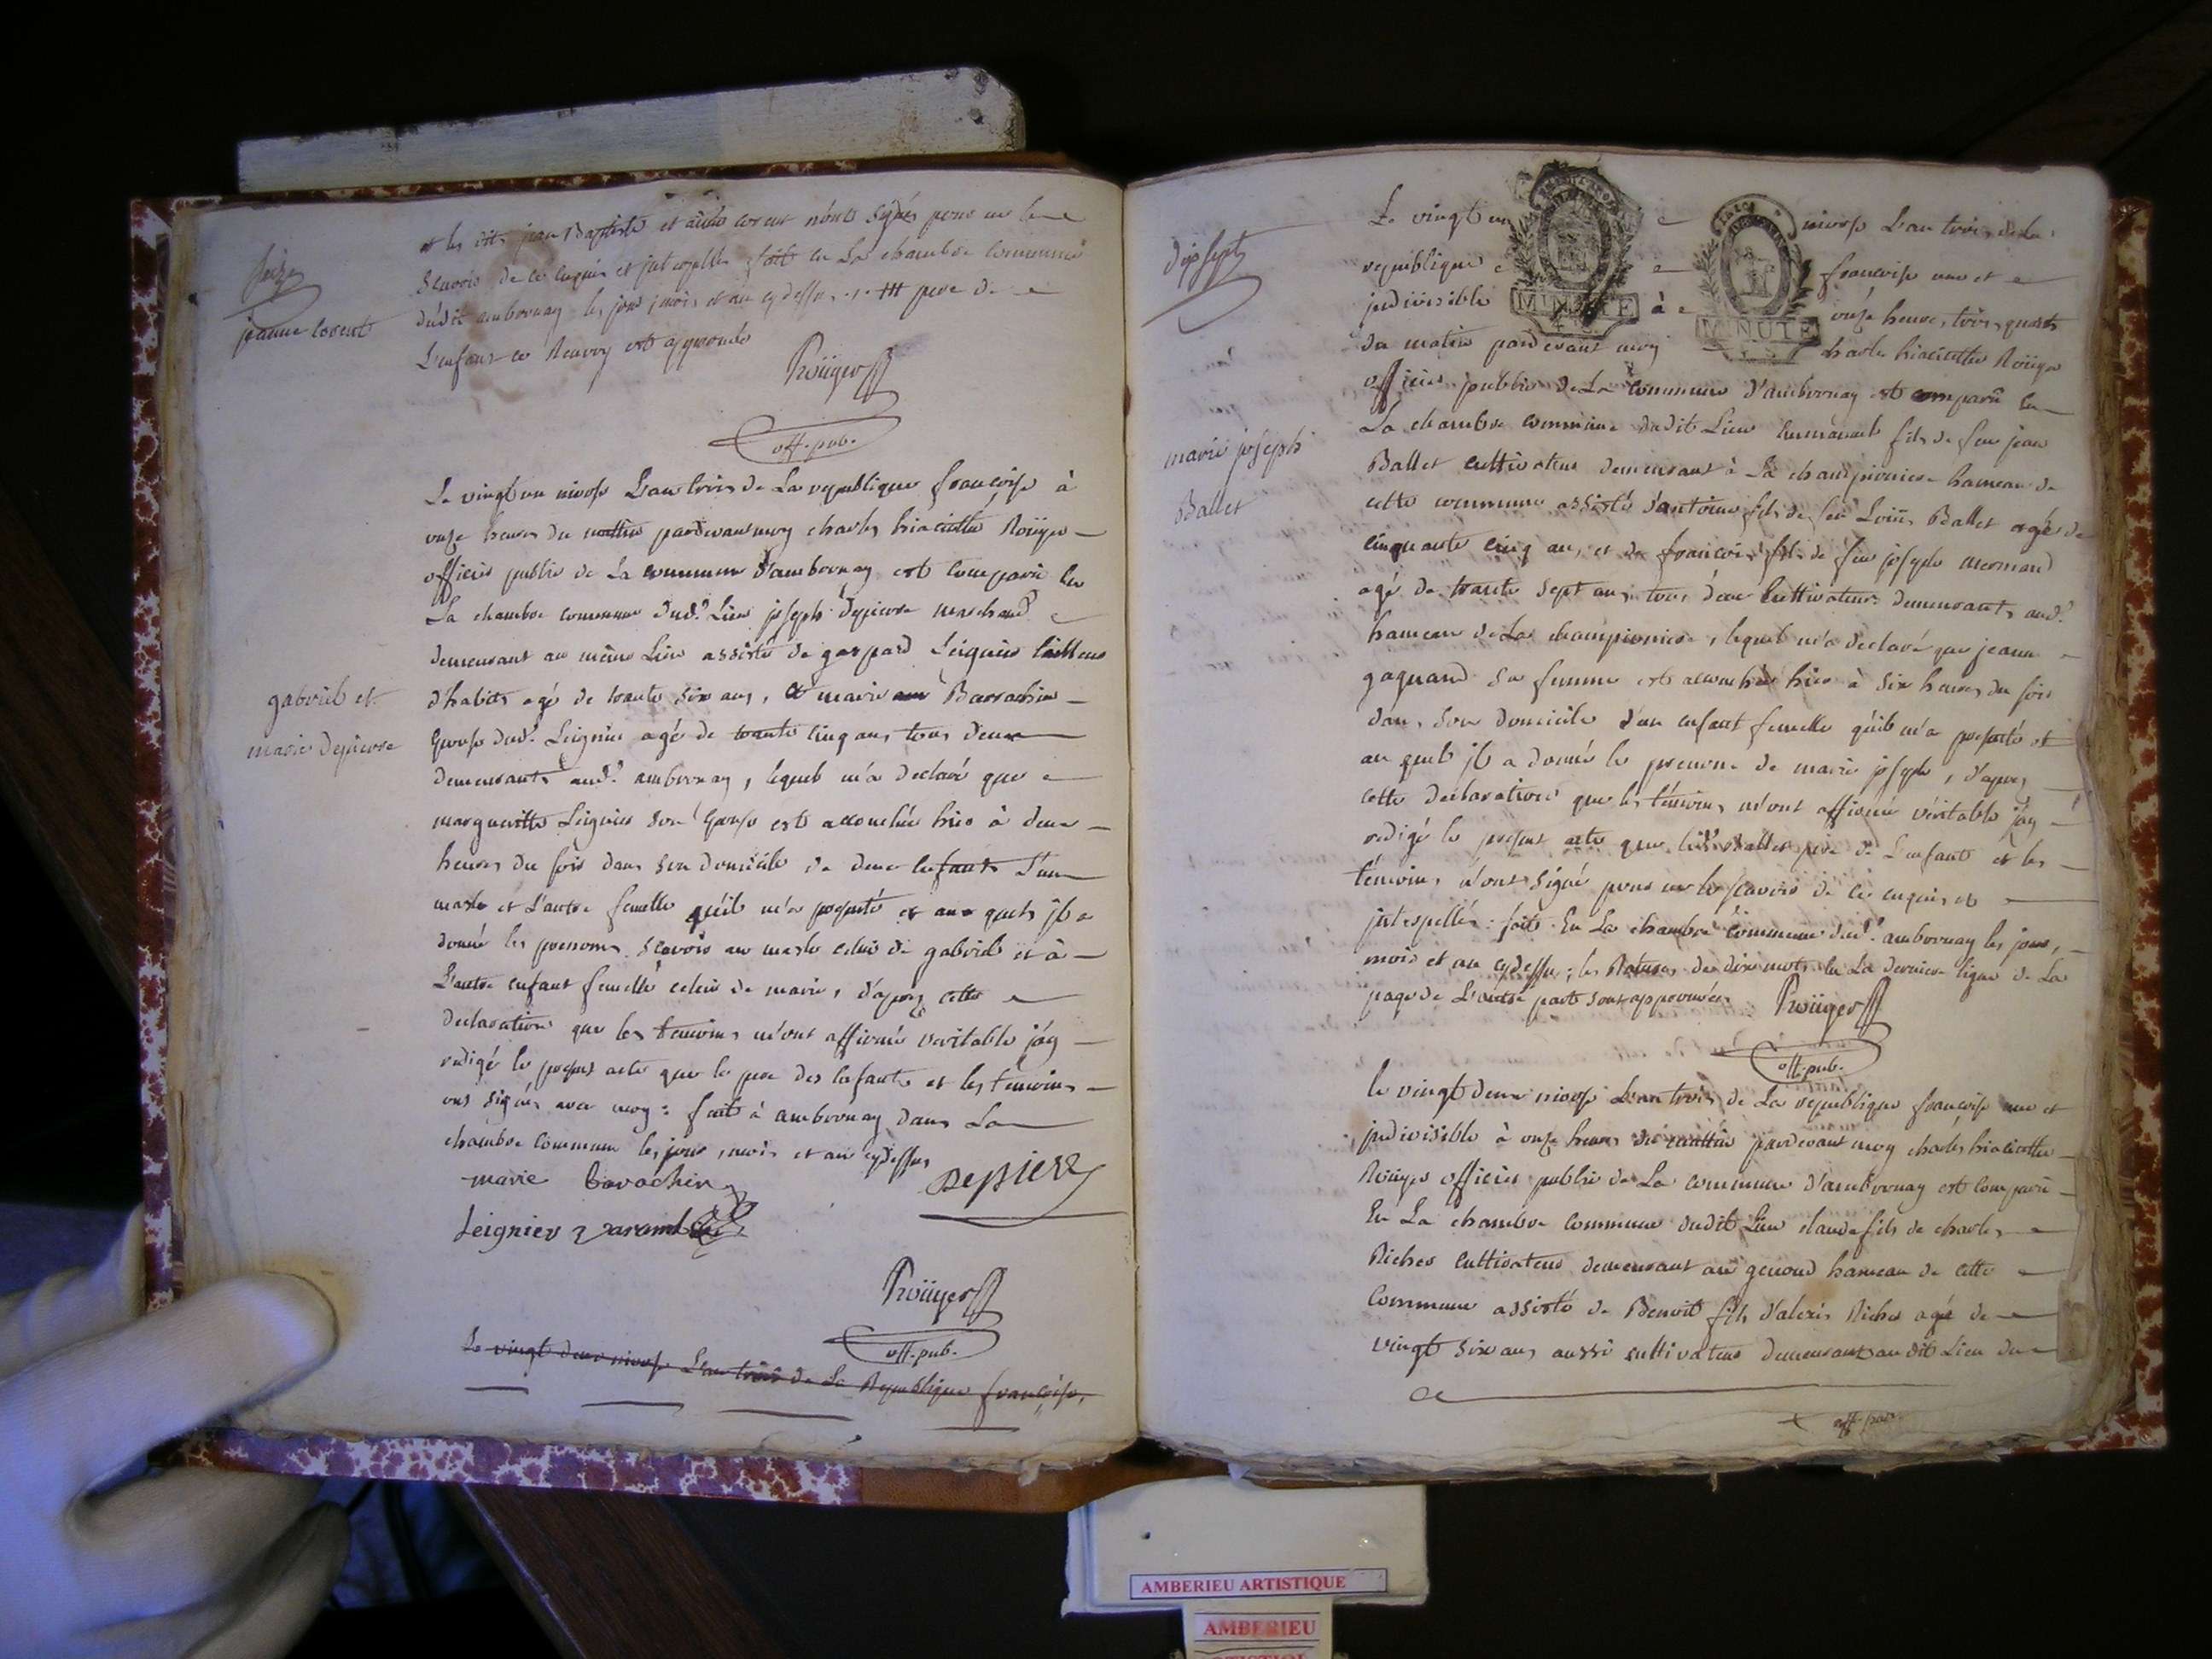 seize
jeanne corent
et les dits jean Baptiste et corent n'ont signés pour ne le
scavoir de ce enquis et fait en La chambre commune
dudit ambornay les jour, mois et an cydessus pere de
L'enfant ce Renvoy est approuvé
Roüyer
off. pub.
gabriel et
marie depierre
Le vingt un nivose L'an trois de La republique françoise à
onze heures du mattin pardevant moy charles hiacinthe Roüyer
officier public de La commune d'ambornay est comparu en
La chambre commune dud.t Lieu joseph depierre marchand
demeurant au même Lieu assisté de gaspard Leignier tailleur
d'habits agé de trante six ans, et marie Barrachin
Epouse dud.t Leignier agé de trante cinq ans tous deux
demeurants aud.t ambornay, lequel m'a declaré que
margueritte Leignier son Epouse est accouchée hier à deux
heures du soir dans son domicile de deux enfants L'un
masle et L'autre femelle qu'il m'a presenté et aux quels il a
donné les prenoms scavoir au masle celui de gabriel et à
L'autre enfant femelle celui de marie, d'apres cette
declaration que les temoins m'ont affirmé veritable j'ay
redigé le present acte que le pere des enfants et les temoins
ont signés avec moy : fait à ambornay dans La
chambre commune les jour, mois et an cydessus
marie barachin
Depierre
Leignier
Roüyer
off. pub.
Le vingt deux nivose L'an trois de La Republique françoise,
dix sept
marie joseph
Ballet
Le vingt un nivose L'an trois de La
republique françoise une et
indivisible à onze heures trois quarts
du matin pardevant moy charles hiacinthe Roüyer
officier public de La commune d'ambornay est comparû en
La chambre commune dudit Lieu Emmanuel fils de feu jean
Ballet cultivateur demeurant à La championiere hameau de
cette commune assisté d'antoine fils de feu Loüis Ballet agé de
cinquante cinq ans, et de françois fils de feu joseph mermand
agé de trante sept ans tous deux cultivateurs demeurants aud.t
hameau de La championiere, lequel m'a declaré que jeanne
gagnand sa femme est accouchée hier à six heures du soir
dans son domicile d'un enfant femelle qu'il m'a presenté et
au quel il a donné le prenom de marie joseph, d'apres
cette declaration que les témoins m'ont affirmé véritable j'ay
redigé le present acte que led.t Ballet pere de L'enfant et les
témoins n'ont signé pour ne le scavoir de ce enquis et
interpellés : fait En La chambre commune dud.t ambornay les jour,
mois et an cydessus ; les Ratures de dix mots en La derniere ligne de La
page de L'autre part sont approuvées Roüyer
off. pub.
le vingt deux nivose L'an trois de La republique françoise une et
indivisible à onze heures du mattin pardevant moy charles hiacinthe
Roüyer officier public de La commune d'ambornay est comparu
En La chambre commune dudit Lieu claude fils de charles
Richer cultivateur demeurant au genoud hameau de cette
Commune assisté de Benoit fils d'alexis Richer agé de
vingt six ans aussi cultivateur demeurant au dit Lieu du
off. pub.
MINUTE
MINUTE
AMBERIEU ARTISTIQUE
AMBERIEU
ARTISTIQUE